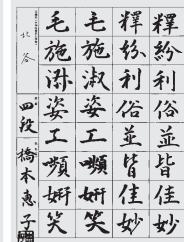 釋紛利俗並皆佳妙
釋紛利俗並皆佳妙
毛施淑姿工嚬妍笑
毛施淑姿工嚬妍笑
四段 橋本惠子